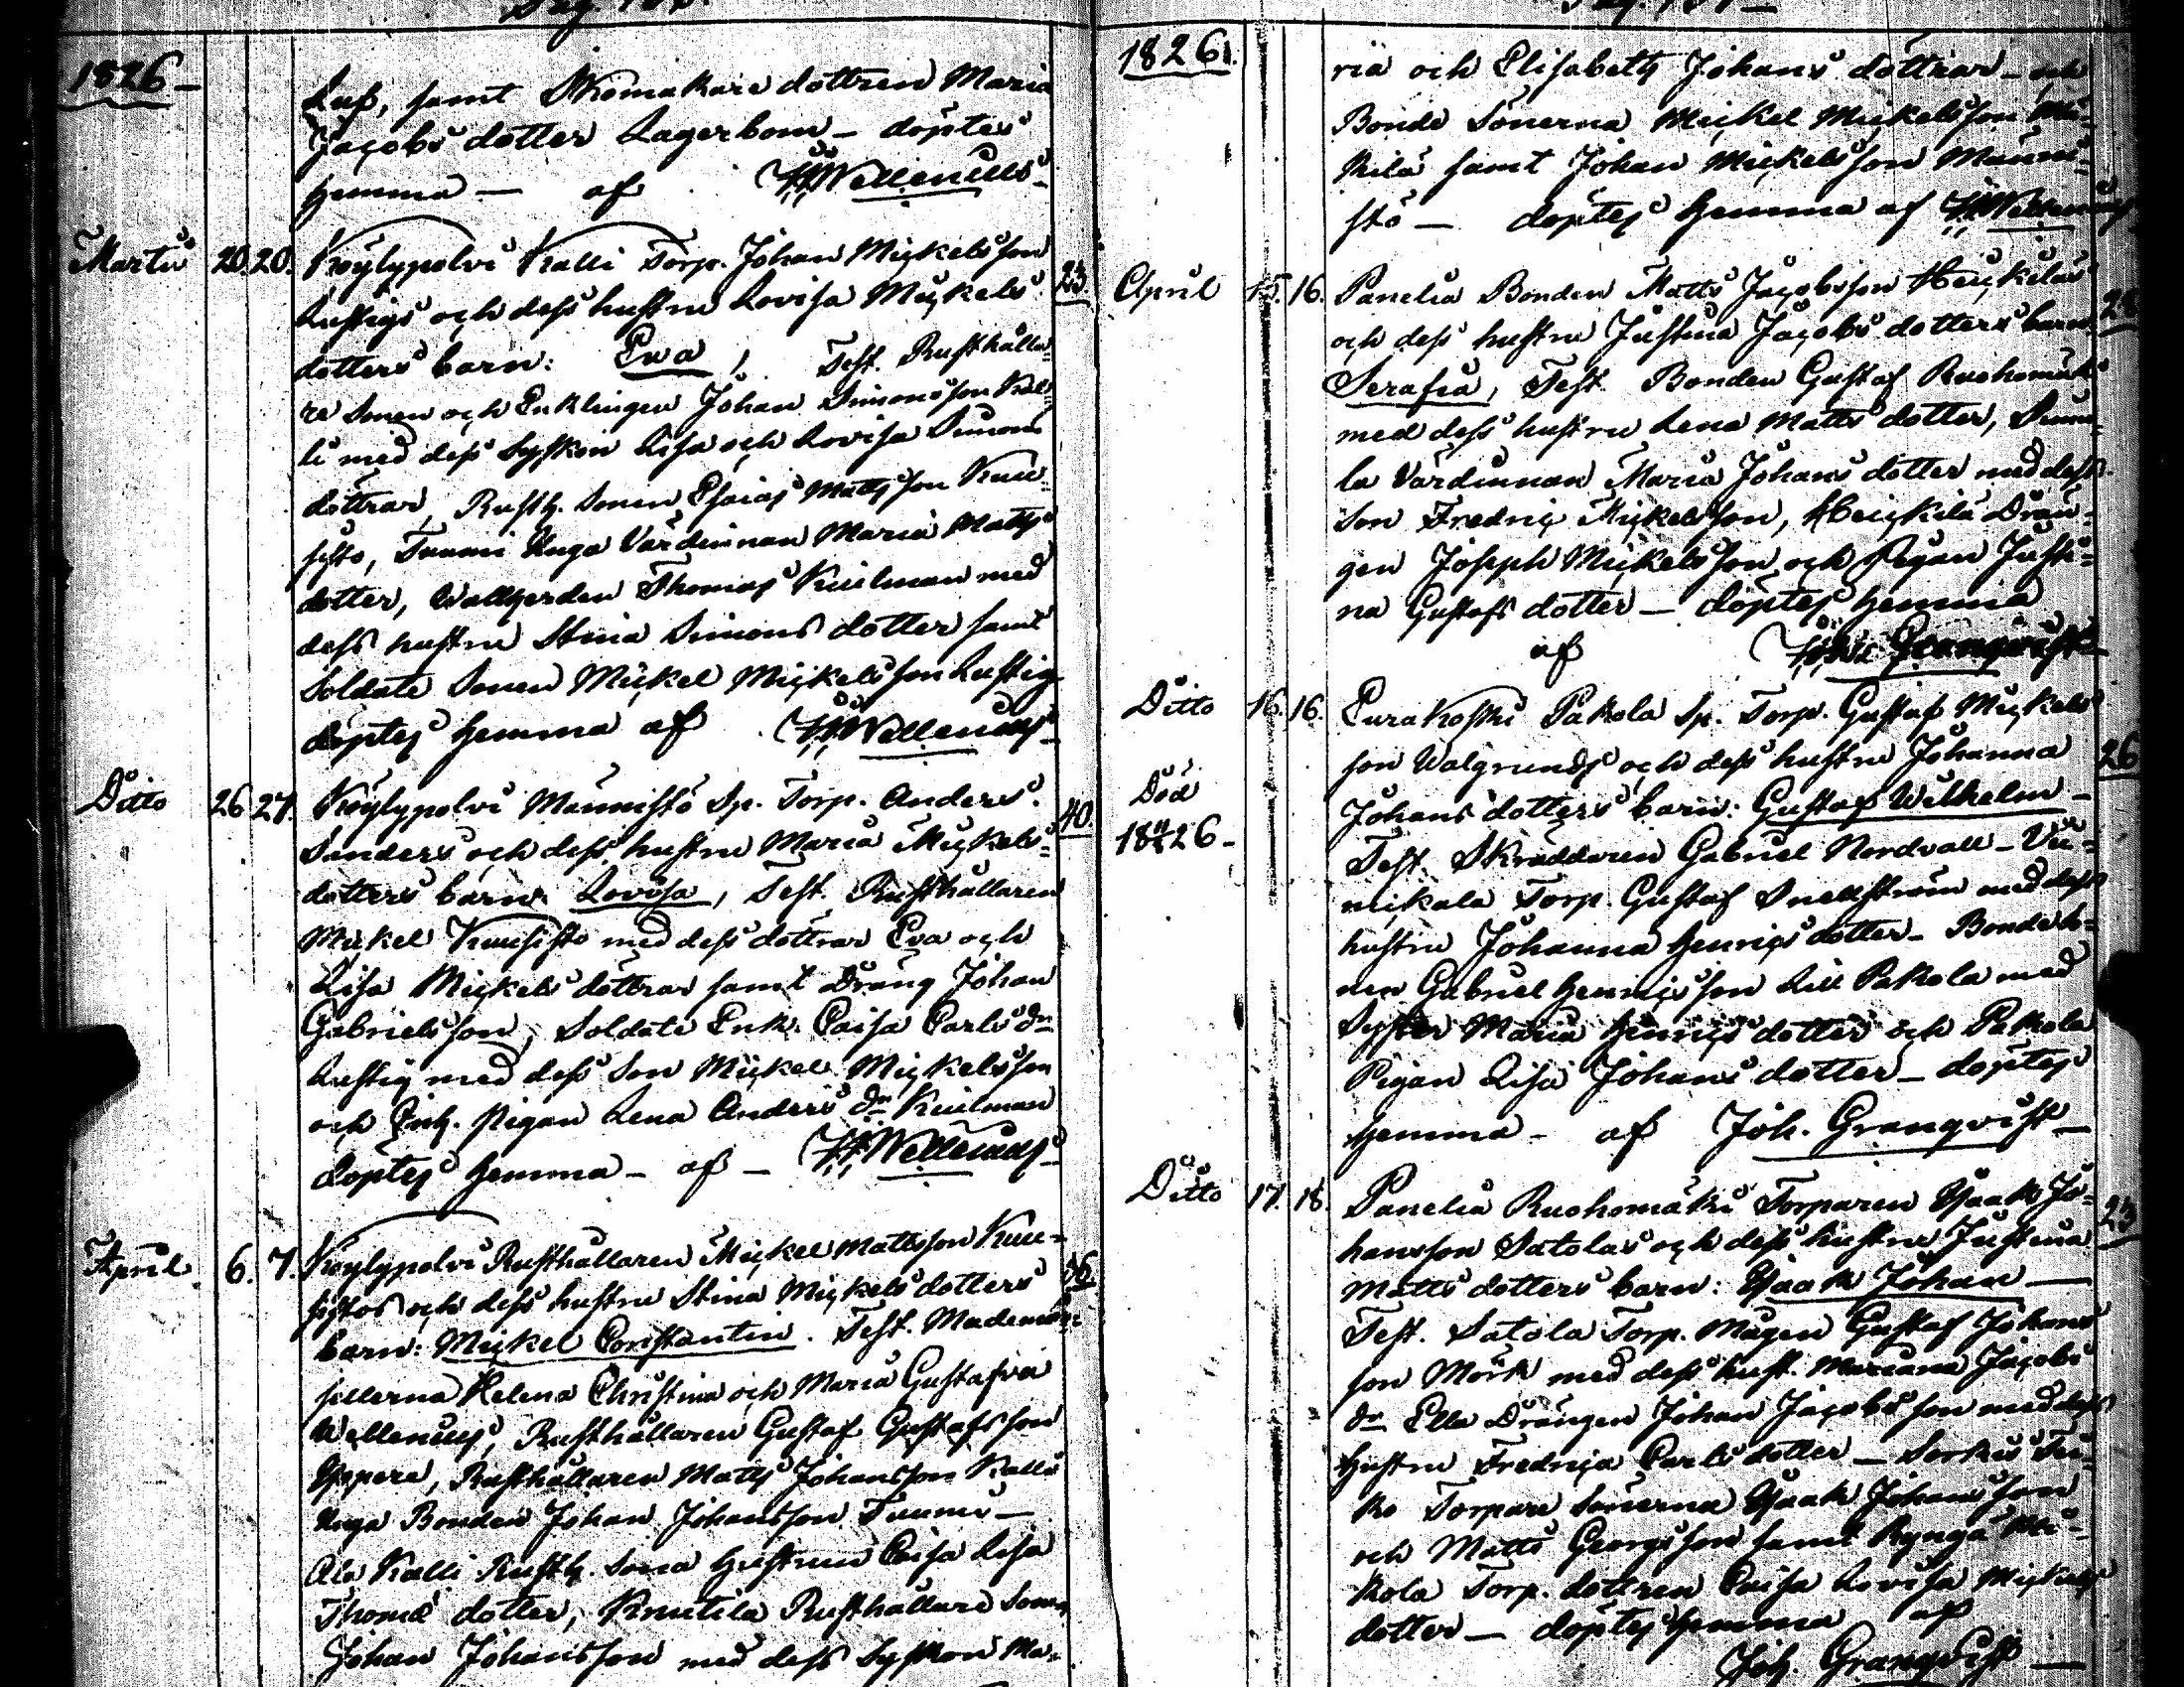 1826
Lust, samt Skomakare dottren Maria
Jacobs dotter Lagerbom – döptes
hemma – af HWellenius
Martii 20. 20. Köylypolvi Kalli Torp. Johan Mickelsson 23.
Lustigs och dess hustru Lovisa Mickels
dotters barn: Eva, Test. Rusthålla-
re Sonen och Enklingen Johan Simonsson Kal-
li med dess Syskon Lisa och Lovisa Simons
döttrar, Rusth. Sonen Esaias Matsson Kuu-
sisto, Tuomi Unga Värdinnan Maria Mats
dotter, Vallgerden Thomas Kuilman med
dess hustru Stina Simons dotter samt
Soldate Sonen Mickel Mickelsson Lustig
döptes hemma af HWellenius
Ditto 26 27. Köylypolvi Männistö Sp. Torp. Anders 40.
Sanders och dess hustru Maria Mickels-
dotters barn: Lovisa, Test. Rusthållaren
Mickel Kuusisto med dess döttrar Eva och
Lisa Mickels döttrar samt Dräng Johan
Gabrielsson, Soldate Enk. Caisa Carls dr
Lustig med dess Son Mickel Mickelsson
och Inh. Pigan Lena Anders dr Kuilman
döptes hemma – af – HWellenius
April 6. 7. Köylypolvi Rusthållaren Mickel Mattsson Kuu- 36.
sistos och dess hustru Stina Mickels dotters
barn: Mickel Constantin. Test. Mademoi-
sellerna Helena Christina och Maria Gustafva
Wellenius, Rusthållaren Gustaf Gustafsson
Yppere, Rusthållaren Matts Johansson Kalli
Unga Bonden Johan Johansson Tuomi –
Ala Kalli Rusth. Sona hustrun Caisa Lisa
Thomæ dotter, Knutila Rusthållare Sonen
Johan Johansson med dess Syskon Ma-
1826.
ria och Elisabeth Johans döttrar – och
Bonde Sönerna Mickel Mickelsson
kilä samt Johan Mickelsson Männi-
stö – döptes hemma af HWellenius
April 15. 16. Panelia Bonden Matts Jacobsson Heickiläs 28
och dess hustru Justina Jacobs dotters barn
Serafia, Test. Bonden Gustaf Ruohomäki
med dess hustru Lena Matts dotter,
la Värdinnan Maria Johans dotter med dess
Son Fredric Mickelsson, Heickilä Drän-
gen Joseph Mickelsson och Pigan Justi-
na Gustafs dotter – döptes hemma
af Granqvist
Ditto 16. 16. Eurakoski Pakola Sp. Torp. Gustaf Mickels 26
son Walgrunds och dess hustru Johanna
Död Johans dotters barn: Gustaf Wilhelm –
1826 – Test. Skräddaren Gabriel Nordvall –
Torp. Gustaf Snellström med dess
hustru Johanna Henrics dotter – Bonde So-
nen Gabriel Henricsson Lill Pakola med
Syster Maria Henrics dotter och Pakola
Pigan Lisa Johans dotter – döptes
hemma – af Joh. Granqvist –
Ditto 17. 18. Panelia Ruohomäki Torparen Isaak Jo- 23
hansson Satolas och dess hustru Justina
Matts dotters barn: Isaak Johan –
Test. Satola Torp. Mågen Gustaf Johans
son Mörk med dess hust. Mariana Jacobs
dr Ella Drängen Johan Jacobsson med dess
hustru Fredrica Carls dotter – Sorkis
ko Torpare Sönerna Isaak Johansson
och Matts Georgsson samt
kola Torp. dottren Caisa Lovisa Mickels
dotter – döptes hemma af
Joh. Granqvist –